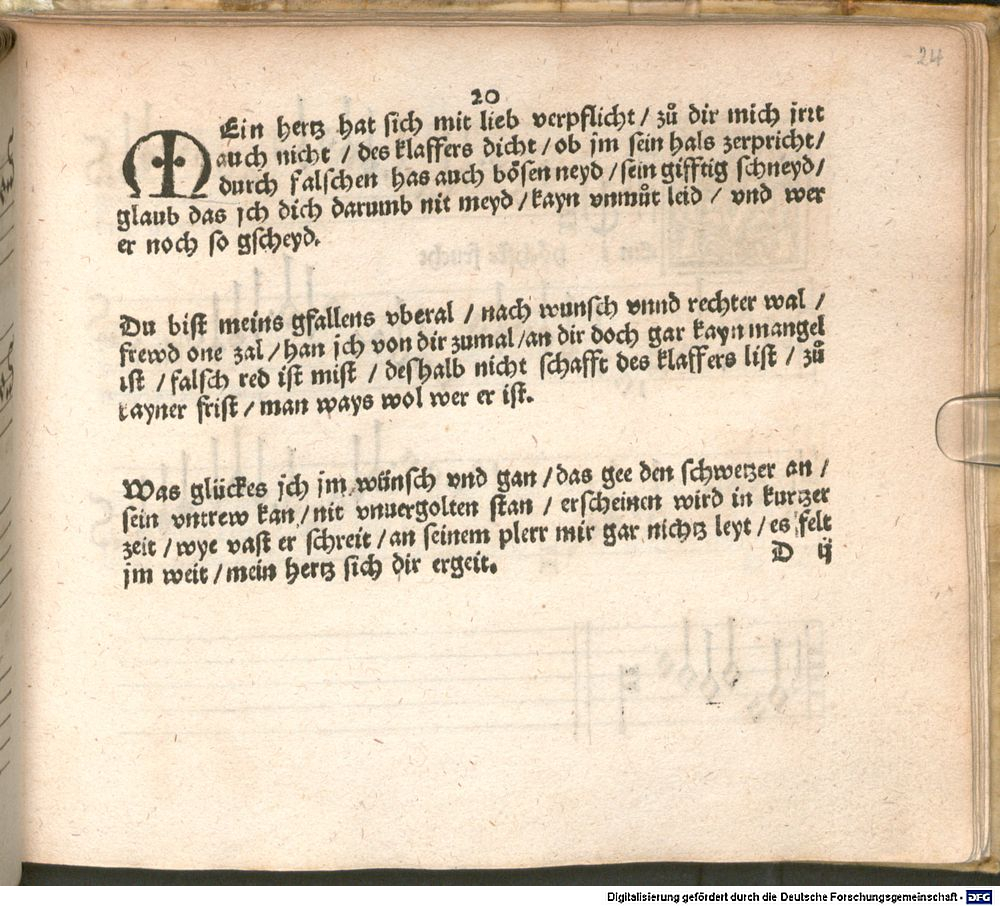 24
20
MEin hertz hat sich mit lieb verpflicht / zů dir mich jrꝛt
auch nicht / des klaffers dicht / ob jm sein hals zerpricht /
durch falschen has auch bösen neyd / sein gifftig schneyd /
glaub das jch dich darumb nit meyd / kayn vnmůt leid / vnd wer
er noch so gscheyd.
Du bist meins gfallens vberal / nach wunsch vnnd rechter wal /
frewd one zal / han jch von dir zumal / an dir doch gar kayn mangel
ist / falsch red ist mist / deshalb nicht schafft des klaffers list / zů
kayner frist / man ways wol wer er ist.
Was glückes jch jm wünsch vnd gan / das gee den schwetzer an /
sein vntrew kan / nit vnuergolten stan / erscheinen wird in kurtzer
zeit / wye vast er schreit / an seinem plerr mir gar nichtz leyt / es felt
jm weit / mein hertz sich dir ergeit.
D ij
Digitalisierung gefördert durch die Deutsche Forschungsgemeinschaft - DFG